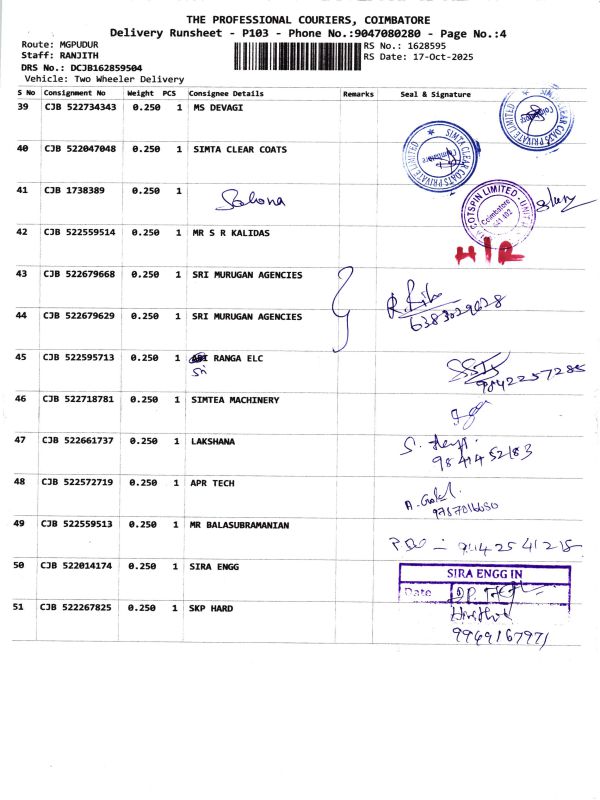 THE PROFESSIONAL COURIERS, COIMBATORE
Delivery Runsheet - P103 - Phone No.:9047080280 - Page No.:4
Route: MGPUDUR
RS No.: 1628595
Staff: RANJITH
RS Date: 17-Oct-2025
DRS No.: DCJB162859504
Vehicle: Two Wheeler Delivery
S No Consignment No Weight PCS Consignee Details Remarks Seal & Signature
39 CJB 522734343 0.250 1 MS DEVAGI
SIMTA CLEAR COATS PRIVATE LIMITED
Coimbatore
40 CJB 522047048 0.250 1 SIMTA CLEAR COATS
SIMTA CLEAR COATS PRIVATE LIMITED
Coimbatore
41 CJB 1738389 0.250 1
COTSPIN LIMITED - UNIT
Coimbatore
42 CJB 522559514 0.250 1 MR S R KALIDAS
43 CJB 522679668 0.250 1 SRI MURUGAN AGENCIES
44 CJB 522679629 0.250 1 SRI MURUGAN AGENCIES
6383029628
45 CJB 522595713 0.250 1 RANGA ELC
Sri
9842257285
46 CJB 522718781 0.250 1 SIMTEA MACHINERY
47 CJB 522661737 0.250 1 LAKSHANA
48 CJB 522572719 0.250 1 APR TECH
49 CJB 522559513 0.250 1 MR BALASUBRAMANIAN
50 CJB 522014174 0.250 1 SIRA ENGG
SIRA ENGG IN
Date
51 CJB 522267825 0.250 1 SKP HARD
9949167971